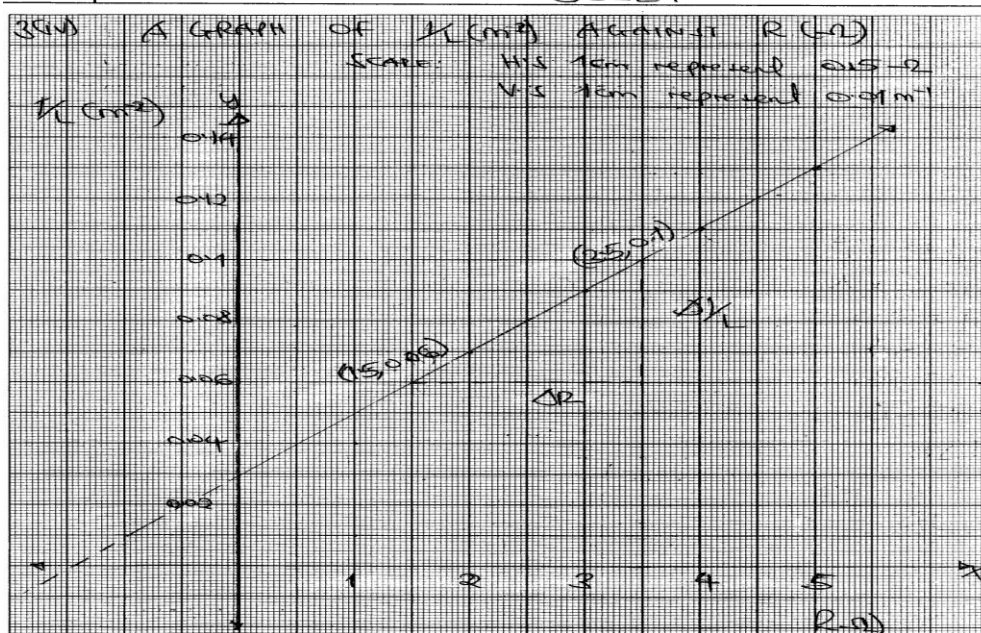 3(iv) A GRAPH OF 1/L (m⁻¹) AGAINST R (Ω)
SCALE: H.S 1cm represent 0.5 Ω
V.S 1cm represent 0.01 m⁻¹
1/L (m⁻¹) y
0.14
0.12
0.1
0.08
0.06
0.04
0.02
(2.5, 0.1)
(1.5, 0.06)
Δ1/L
ΔR
1 2 3 4 5 x